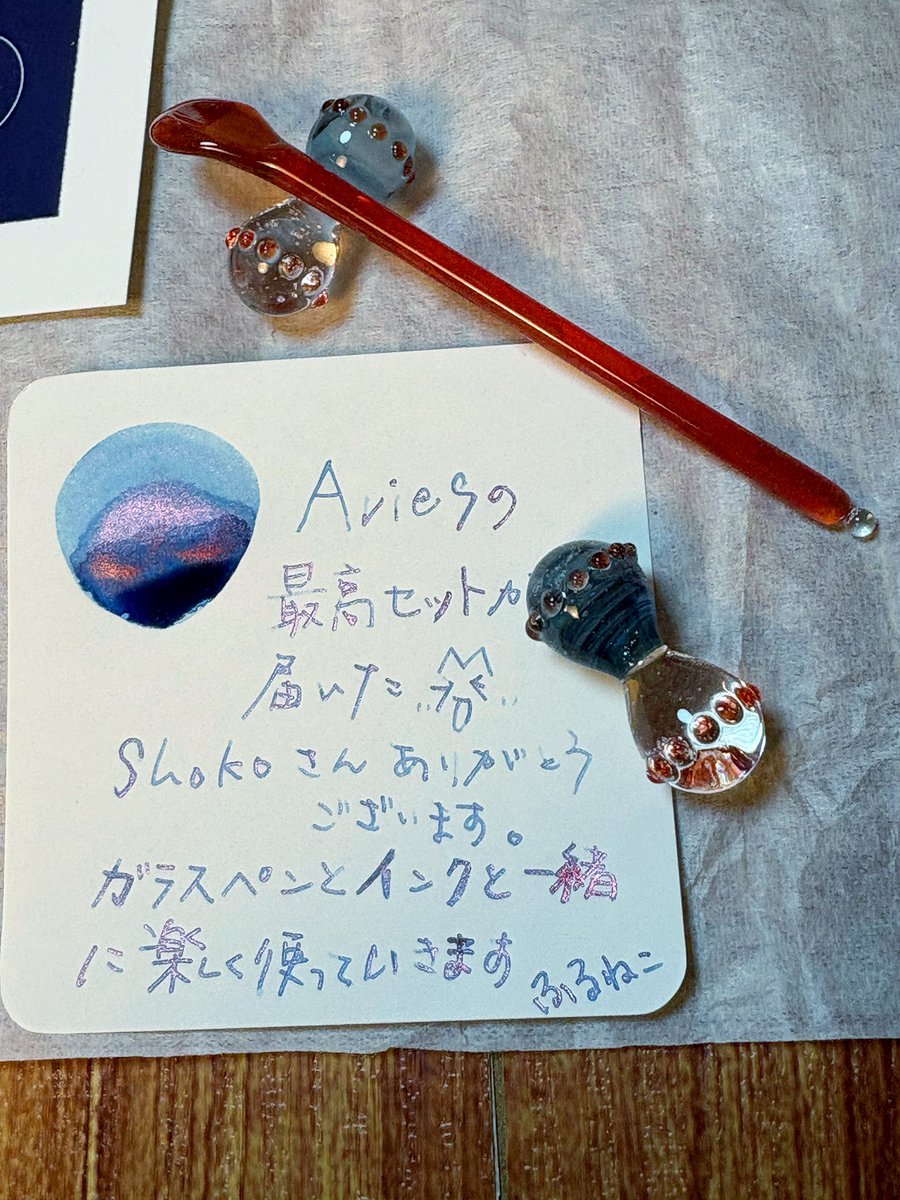 Ariesの
最高セットが
届いた
Shokoさんありがとう
ございます。
ガラスペンとインクと一緒
に楽しく使っていきます
ふるねこ